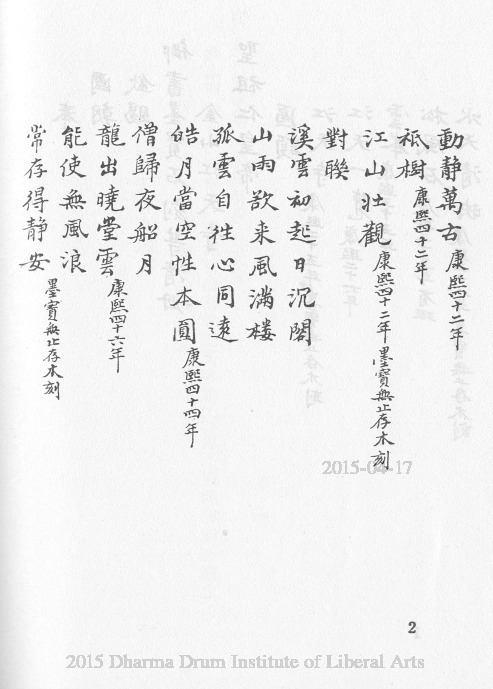 動靜萬古 康熙四十二年
祇樹 康熙四十二年
江山壯觀 康熙四十二年墨寶無止存木刻
對聯
溪雲初起日沉閣
山雨欲来風滿楼
孤雲自徃心同遠
皓月當空性本圓 康熙四十四年
僧歸夜船月
龍出曉堂雲 康熙四十六年
能使無風浪
常存得靜安 墨寶無止存木刻
2015-04-17
2
2015 Dharma Drum Institute of Liberal Arts